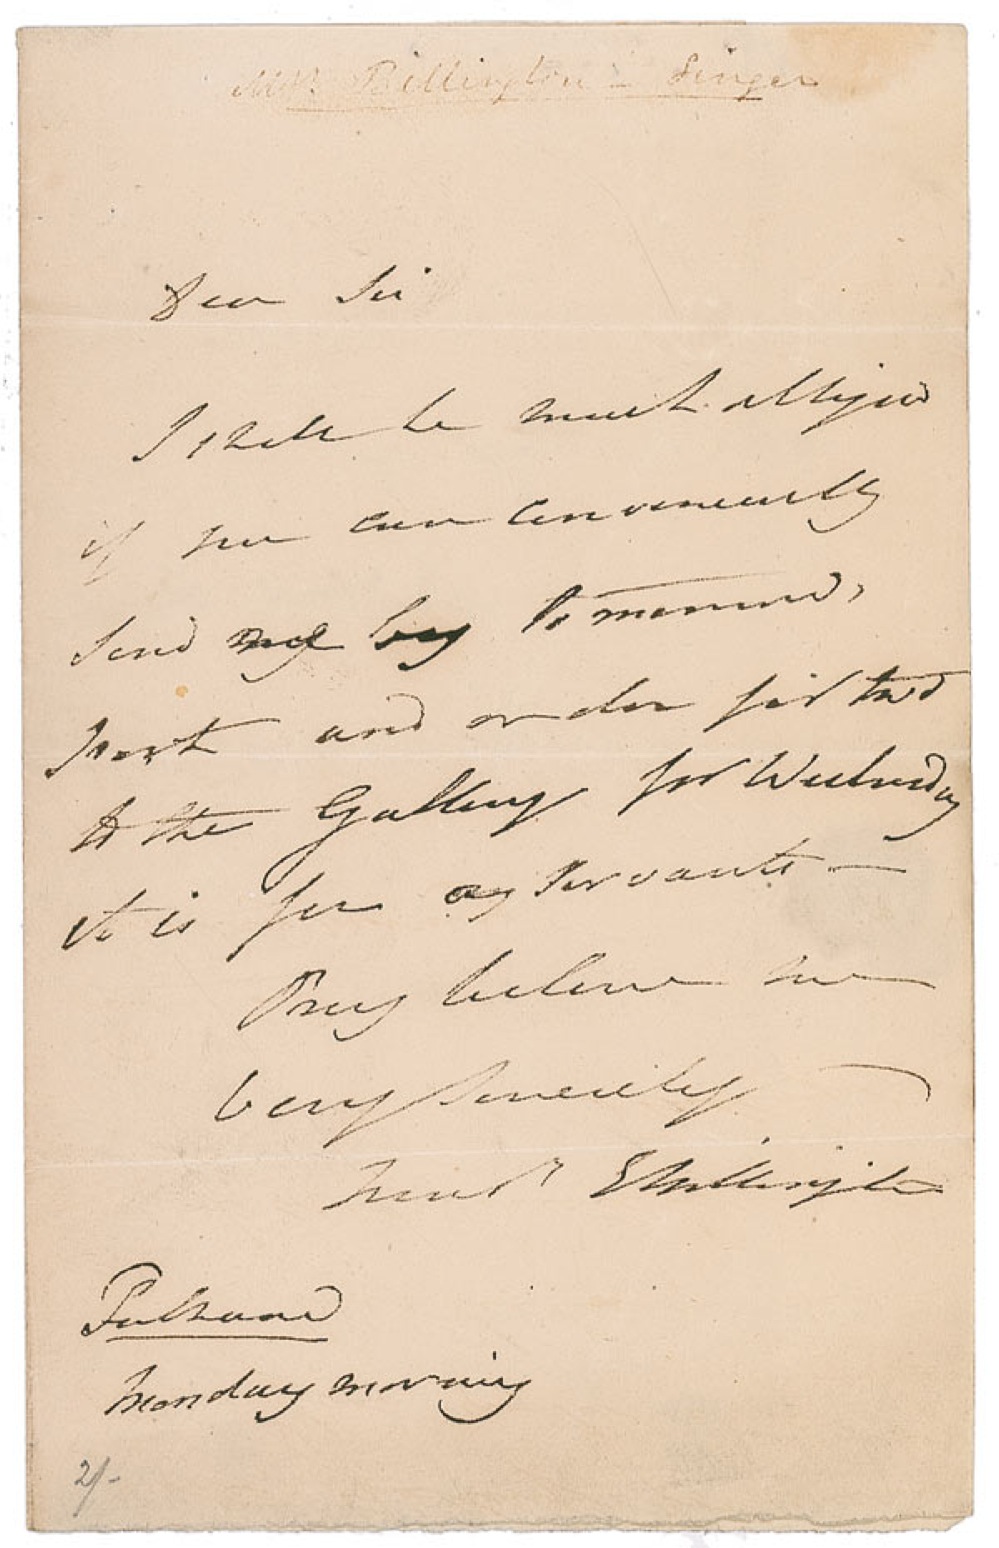 Mrs. Billington - Singer
Dear Sir
I shall be much obliged
if you can conveniently
send me by tomorrows
post and order for two
to the Gallery for Wednesday
it is for my servants —
Pray believe me
very sincerely
EBillington
Fulham
Monday morning
2/-